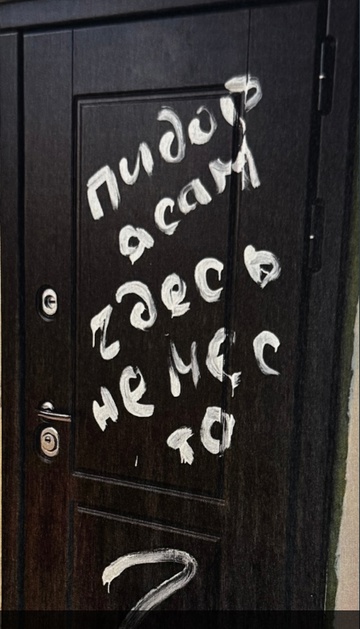 пидор
ясам
здесь
не мес
то